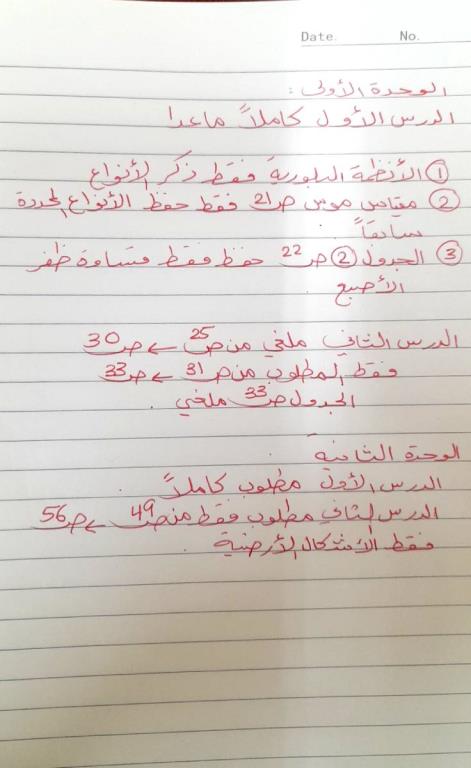 Date. No.
الوحدة الأولى :
الدرس الأول كاملاً ماعدا
① الأنظمة البلورية فقط ذكر الأنواع
② مقياس موس ص21 فقط حفظ الأنواع المحددة
سابقاً
③ الجدول ② ص22 حفظ فقط قساوة ظفر
الأصبع
الدرس الثاني ملغي من ص25 ← ص30
فقط المطلوب من ص31 ← ص33
الجدول ص33 ملغي .
الوحدة الثانية
الدرس الأول مطلوب كاملاً
الدرس الثاني مطلوب فقط من ص49 ← ص56
فقط الأشكال الأرضية